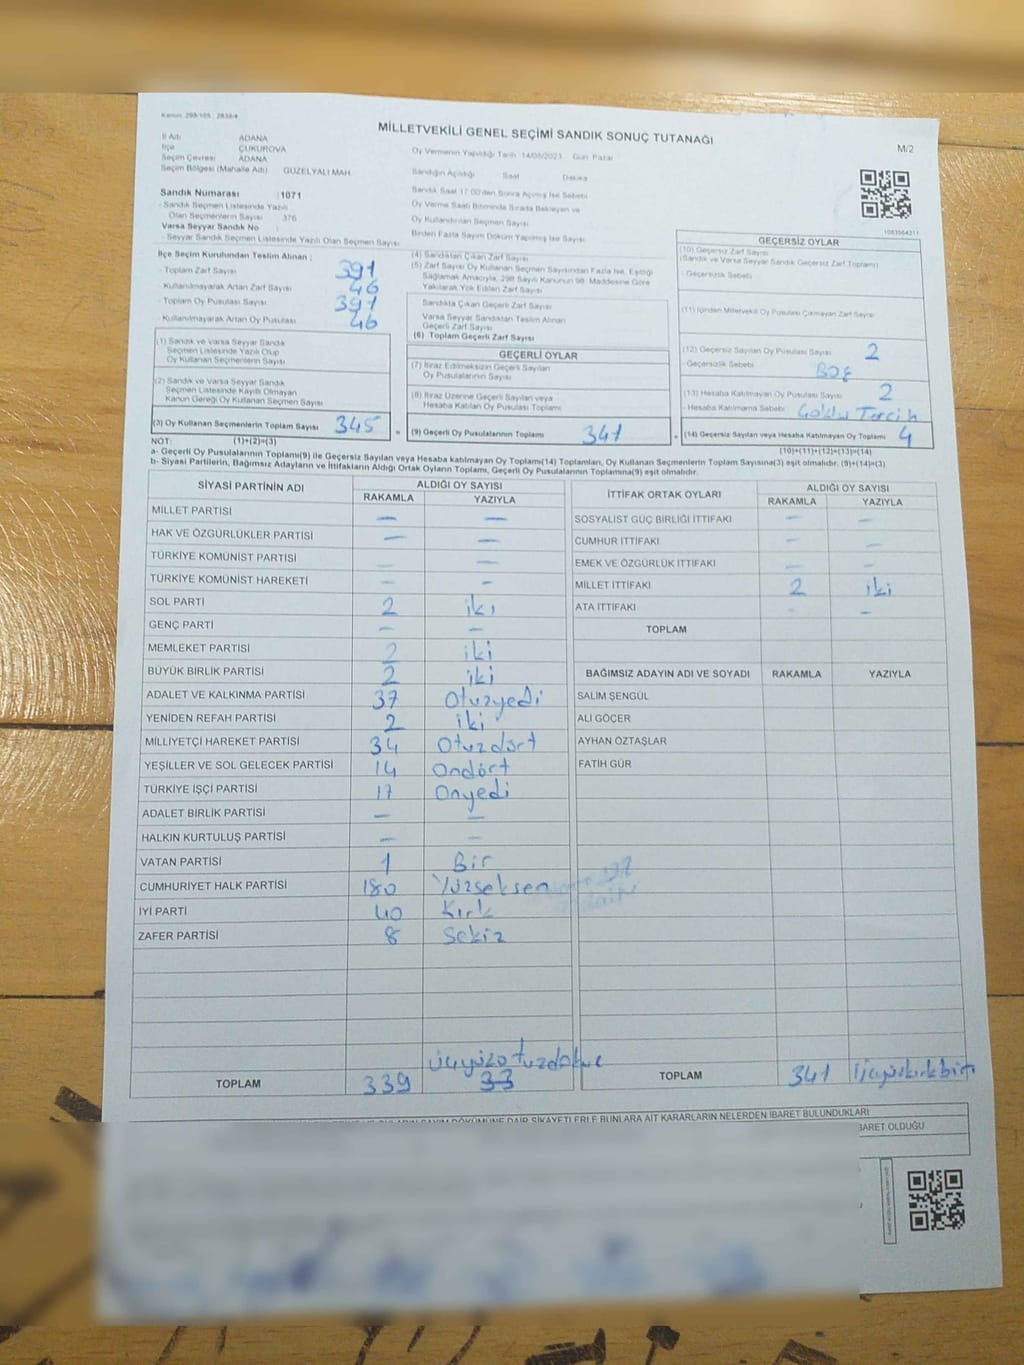 MİLLETVEKİLİ GENEL SEÇİMİ SANDIK SONUÇ TUTANAĞI
M/2
İl Adı ADANA
İlçe ÇUKUROVA
Seçim Çevresi ADANA
Seçim Bölgesi (Mahalle Adı) GÜZELYALI MAH.
Sandık Numarası : 1071
- Sandık Seçmen Listesinde Yazılı
Olan Seçmenlerin Sayısı 376
Varsa Seyyar Sandık No :
- Seyyar Sandık Seçmen Listesinde Yazılı Olan Seçmen Sayısı
Oy Vermenin Yapıldığı Tarih :14/05/2023 Gün: Pazar
Sandığın Açıldığı Saat Dakika
Sandık Saat 17:00'den Sonra Açılmış İse Sebebi
Oy Verme Saati Bitiminde Sırada Bekleyen ve
Oy Kullandırılan Seçmen Sayısı
Birden Fazla Sayım Döküm Yapılmış İse Sayısı
İlçe Seçim Kurulundan Teslim Alınan ;
- Toplam Zarf Sayısı 391
- Kullanılmayarak Artan Zarf Sayısı 46
- Toplam Oy Pusulası Sayısı 391
- Kullanılmayarak Artan Oy Pusulası 46
(1) Sandık ve Varsa Seyyar Sandık
Seçmen Listesinde Yazılı Olup
Oy Kullanan Seçmenlerin Sayısı
(2) Sandık ve Varsa Seyyar Sandık
Seçmen Listesinde Kayıtlı Olmayan
Kanun Gereği Oy Kullanan Seçmen Sayısı
(3) Oy Kullanan Seçmenlerin Toplam Sayısı 345
(4) Sandıktan Çıkan Zarf Sayısı
(5) Zarf Sayısı Oy Kullanan Seçmen Sayısından Fazla İse, Eşitliği
Sağlamak Amacıyla, 298 Sayılı Kanunun 98. Maddesine Göre
Yakılarak Yok Edilen Zarf Sayısı
Sandıkta Çıkan Geçerli Zarf Sayısı
Varsa Seyyar Sandıktan Teslim Alınan
Geçerli Zarf Sayısı
(6) Toplam Geçerli Zarf Sayısı
GEÇERLİ OYLAR
(7) İtiraz Edilmeksizin Geçerli Sayılan
Oy Pusulalarının Sayısı
(8) İtiraz Üzerine Geçerli Sayılan veya
Hesaba Katılan Oy Pusulası Toplamı
= (9) Geçerli Oy Pusulalarının Toplamı 341
GEÇERSİZ OYLAR
(10) Geçersiz Zarf Sayısı
(Sandık ve Varsa Seyyar Sandık Geçersiz Zarf Toplamı)
- Geçersizlik Sebebi
(11) İçinden Milletvekili Oy Pusulası Çıkmayan Zarf Sayısı
(12) Geçersiz Sayılan Oy Pusulası Sayısı 2
- Geçersizlik Sebebi Boş
(13) Hesaba Katılmayan Oy Pusulası Sayısı 2
- Hesaba Katılmama Sebebi Çoklu Tercih
+ (14) Geçersiz Sayılan veya Hesaba Katılmayan Oy Toplamı 4
NOT: (1)+(2)=(3) (10)+(11)+(12)+(13)=(14)
a- Geçerli Oy Pusulaları Toplamı(9) ile Geçersiz Sayılan veya Hesaba katılmayan Oy Toplamı(14) Toplamları, Oy Kullanan Seçmenlerin Toplam Sayısına(3) eşit olmalıdır. (9)+(14)=(3)
b- Siyasi Partilerin, Bağımsız Adayların ve İttifakların Aldığı Ortak Oyların Toplamı, Geçerli Oy Pusulalarının Toplamına(9) eşit olmalıdır.
SİYASİ PARTİNİN ADI ALDIĞI OY SAYISI
RAKAMLA YAZIYLA
MİLLET PARTİSİ — —
HAK VE ÖZGÜRLÜKLER PARTİSİ — —
TÜRKİYE KOMÜNİST PARTİSİ — —
TÜRKİYE KOMÜNİST HAREKETİ — —
SOL PARTİ 2 iki
GENÇ PARTİ — —
MEMLEKET PARTİSİ 2 iki
BÜYÜK BİRLİK PARTİSİ 2 iki
ADALET VE KALKINMA PARTİSİ 37 Otuzyedi
YENİDEN REFAH PARTİSİ 2 iki
MİLLİYETÇİ HAREKET PARTİSİ 34 Otuzdört
YEŞİLLER VE SOL GELECEK PARTİSİ 14 Ondört
TÜRKİYE İŞÇİ PARTİSİ 17 Onyedi
ADALET BİRLİK PARTİSİ — —
HALKIN KURTULUŞ PARTİSİ — —
VATAN PARTİSİ 1 Bir
CUMHURİYET HALK PARTİSİ 180 Yüzseksen
İYİ PARTİ 40 Kırk
ZAFER PARTİSİ 8 Sekiz
üçyüzotuzdokuz
TOPLAM 339 33
İTTİFAK ORTAK OYLARI ALDIĞI OY SAYISI
RAKAMLA YAZIYLA
SOSYALİST GÜÇ BİRLİĞİ İTTİFAKI — —
CUMHUR İTTİFAKI — —
EMEK VE ÖZGÜRLÜK İTTİFAKI — —
MİLLET İTTİFAKI 2 iki
ATA İTTİFAKI - —
TOPLAM
BAĞIMSIZ ADAYIN ADI VE SOYADI RAKAMLA YAZIYLA
SALİM ŞENGÜL
ALİ GÖÇER
AYHAN ÖZTAŞLAR
FATİH GÜR
TOPLAM 341 Üçyüzkırkbir
DÖKÜMÜNE DAİR ŞİKAYETLERLE BUNLARA AİT KARARLARIN NELERDEN İBARET BULUNDUKLARI
İBARET OLDUĞU